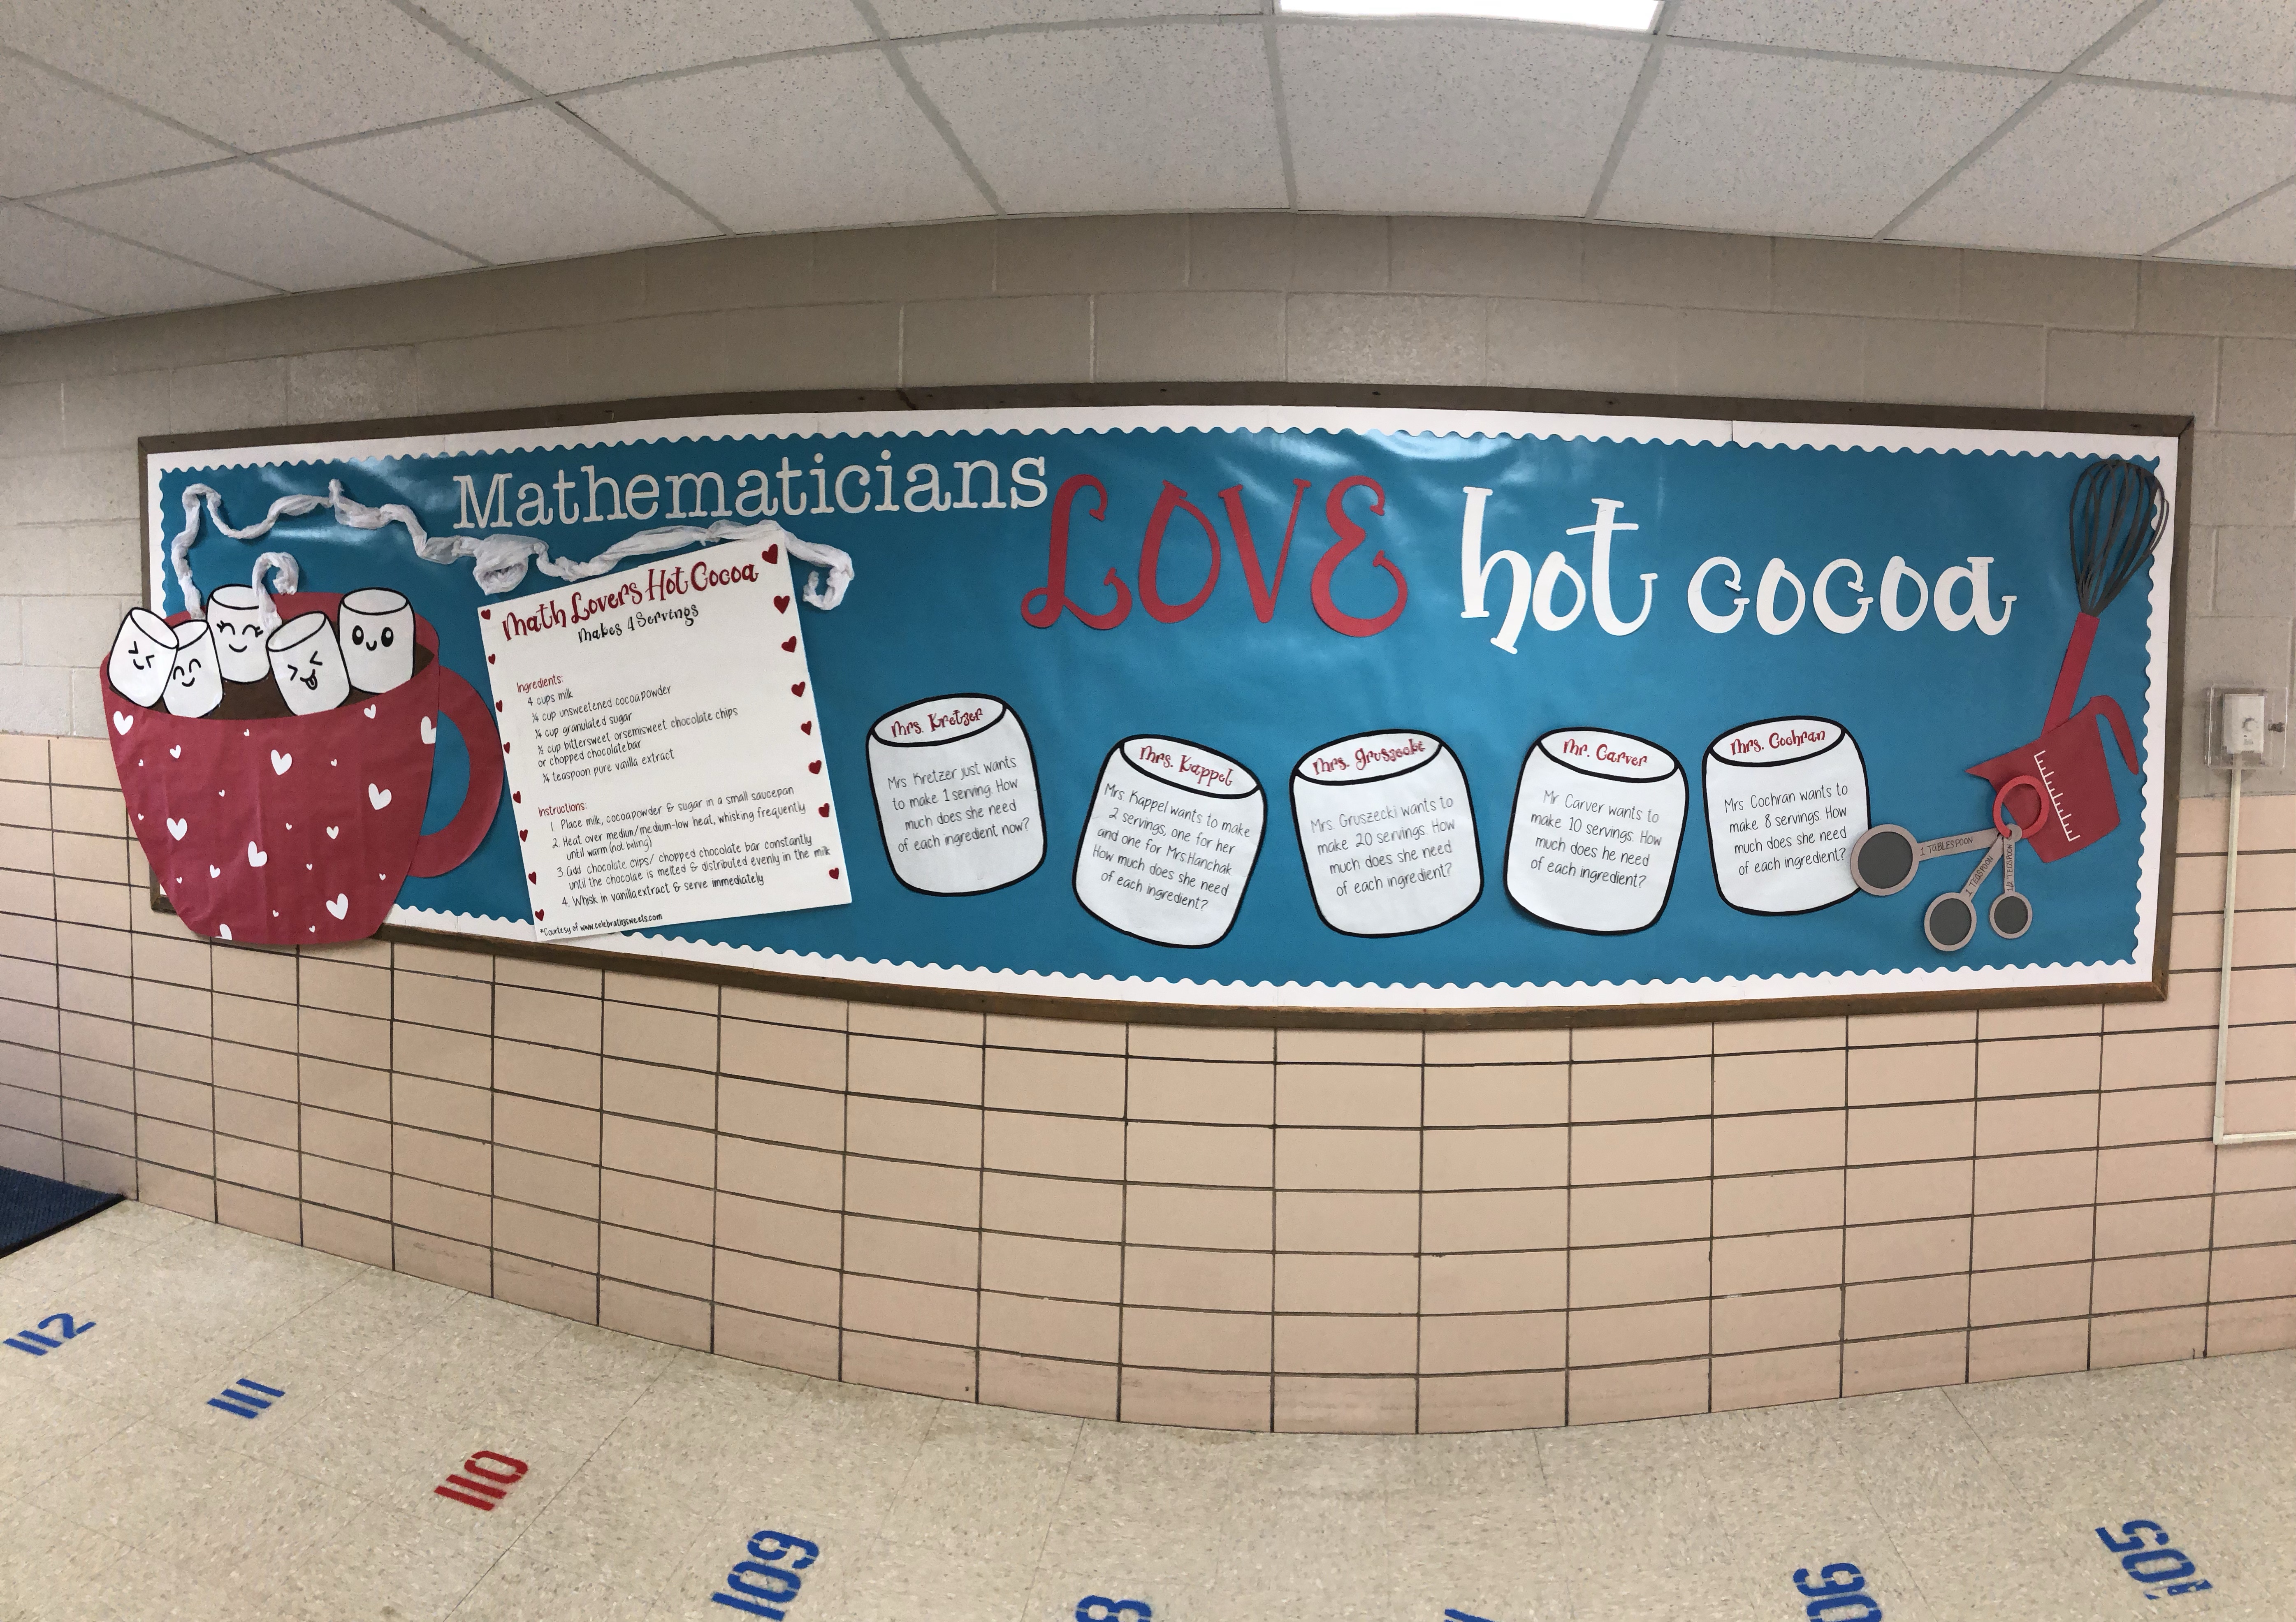 Mathematicians LOVE hot cocoa
Math Lovers Hot Cocoa
Makes 4 Servings
Ingredients:
4 cups milk
¼ cup unsweetened cocoa powder
¼ cup granulated sugar
½ cup bittersweet orsemisweet chocolate chips
or chopped chocolate bar
¼ teaspoon pure vanilla extract
Instructions:
1. Place milk, cocoa powder & sugar in a small saucepan
2. Heat over medium/medium-low heat, whisking frequently
until warm (not biling)
3. Add chocolate chips/ chopped chocolate bar constantly
until the chocolae is melted & distributed evenly in the milk
4. Whisk in vanilla extract & serve immediately
*Courtesy of www.celebratingsweets.com
Mrs. Kretzer
Mrs Kretzer just wants
to make 1 serving. How
much does she need
of each ingredient now?
Mrs. Kappel
Mrs Kappel wants to make
2 servings, one for her
and one for Mrs Hanchak
How much does she need
of each ingredient?
Mrs. Gruszecki
Mrs. Gruszecki wants to
make 20 servings. How
much does she need
of each ingredient?
Mr. Carver
Mr Carver wants to
make 10 servings. How
much does he need
of each ingredient?
Mrs. Cochran
Mrs Cochran wants to
make 8 servings. How
much does she need
of each ingredient?
1 TABLESPOON
1 TEASPOON
1/2 TEASPOON
112
111
110
109
8
06
105